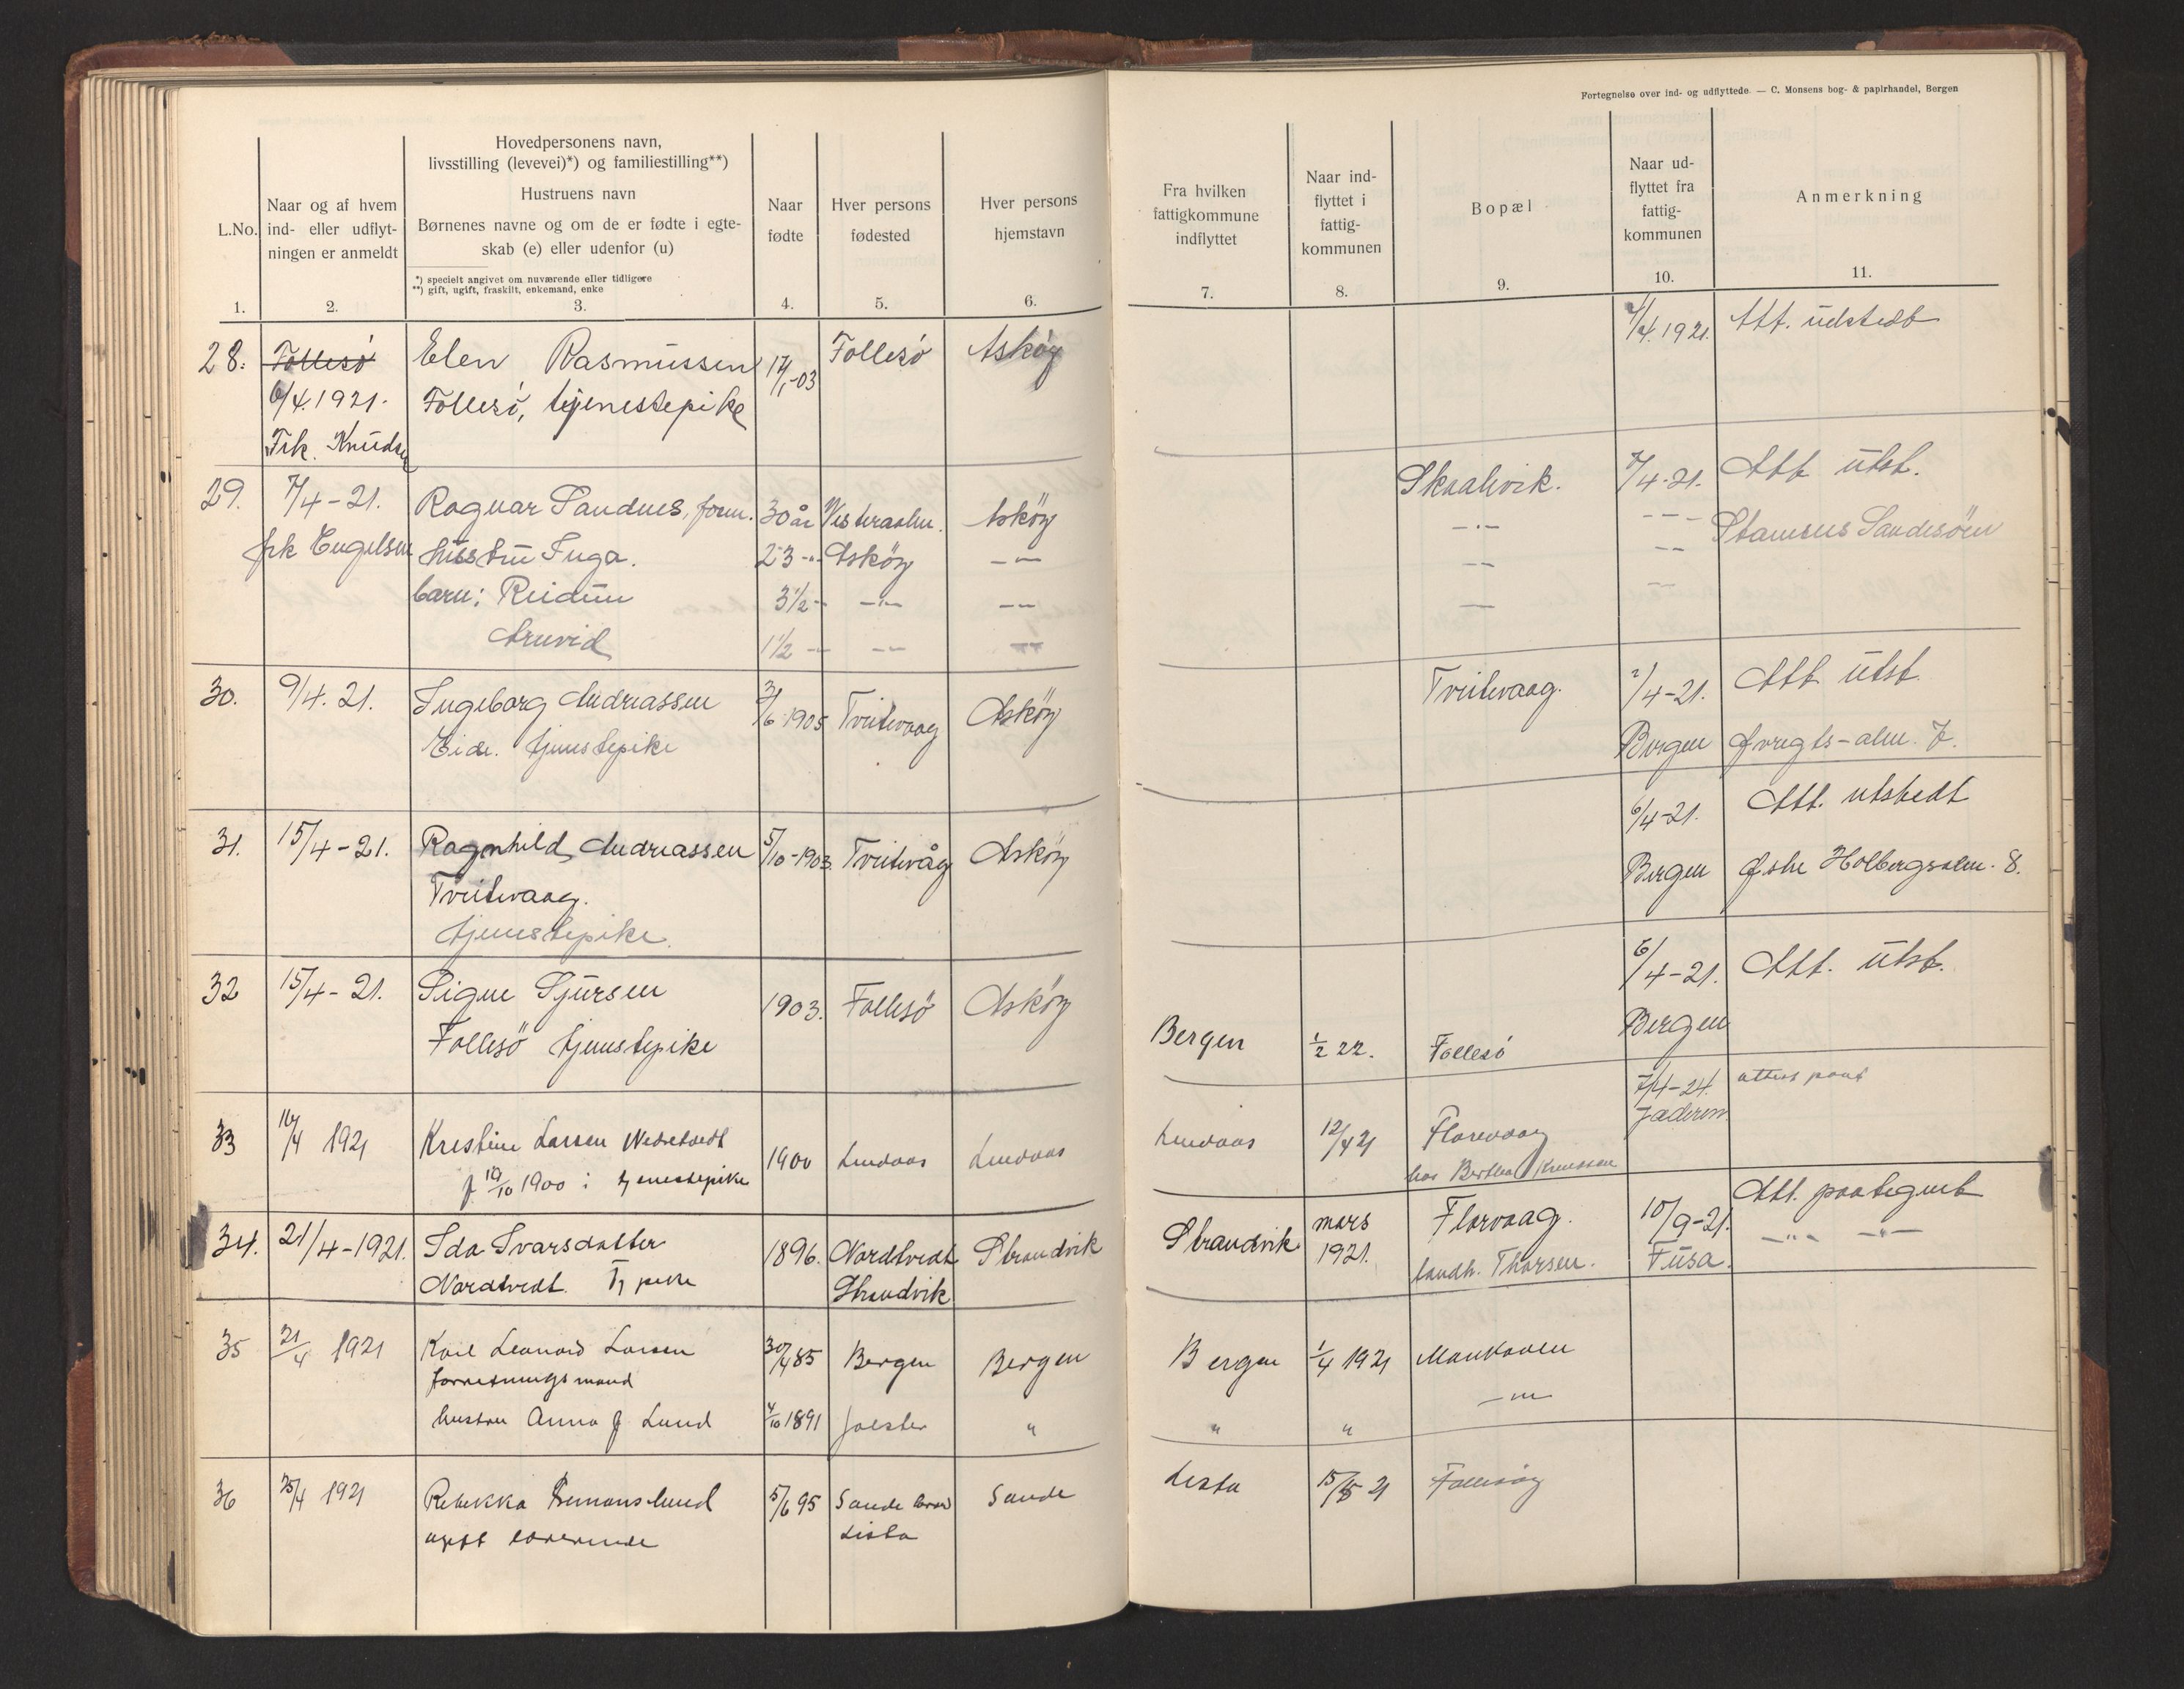 Fortegnelse over ind- og udflyttede. — C. Monsens bog- & papirhandel, Bergen
L.No.
1.
Naar og af hvem
ind- eller udflyt-
ningen er anmeldt
2.
Hovedpersonens navn,
livsstilling (levevei)*) og familiestilling**)
Hustruens navn
Børnenes navne og om de er fødte i egte-
skab (e) eller udenfor (u)
*) specielt angivet om nuværende eller tidligere
**) gift, ugift, fraskilt, enkemand, enke
3.
Naar
fødte
4.
Hver persons
fødested
5.
Hver persons
hjemstavn
6.
Fra hvilken
fattigkommune
indflyttet
7.
Naar ind-
flyttet i
fattig-
kommunen
8.
Bopæl
9.
Naar ud-
flyttet fra
fattig-
kommunen
10.
Anmerkning
11.
28.
Follesö
6/4.1921.
Frk. Knudsen
Elen Rasmussen
Follesö, tjenestepike
17/1-03
Follesö
Asköy
/4.1921.
Att. udstedt
29.
7/4-21.
frk Engelsen
Ragnar Sandnes, form.
hustru Inga.
barn: Reidun
Arnvid
30 år
23 -"-
3 1/2 -
1 1/2 -"-
Vesteraalen.
Asköy
-"-
-"-
Asköy
-"-
-"-
-"-
Skaalvik.
-"-
-"-
-"-
7/4-21.
-"-
-"-
-"-
Att utst.
Stamsus Sandesöen
30.
9/4.21.
Ingeborg Andreassen
Eide. tjenestepike
3/6-1905
Tveitevaag
Asköy
Tveitevaag.
2/4-21.
Bergen
Att utst.
Øvregts-alm. 7.
31.
15/4-21.
Ragnhild Andreassen
Tveitevaag.
tjenestepike.
5/10-1903.
Tveitevåg
Asköy
6/4-21.
Bergen
Att. utstedt
Østre Holbergsalm. 8.
32
15/4-21.
Signe Sjursen
Follesö tjenestepike
1903.
Follesö
Asköy
Bergen
1/2 22.
Follesö
6/4-21.
Bergen
7/4-24.
Jæderen
Att. utst.
attest paat
33
16/4 1921
Kristine Larsen Nedretvedt
f. 19/10 1900 i tjenestepike
1900
Lindaas
Lindaas
Lindaas
12/4 21
Florvaag
hos Berthel Knudsen
34.
21/4-1921.
Ida Ivarsdatter
Nordtvedt. Tj pike
1896.
Nordtvedt
Strandvik
Strandvik
Strandvik
mars
1921.
Florvaag.
landh. Thorsen.
10/9-21.
Fusa.
Att. paategnet
-"- -"-
35
21/4 1921
Karl Leonard Larsen
forretningsmand
hustru Anna f Lund
30/4 85
4/10 1891
Bergen
Jølster
Bergen
"
Bergen
"
1/4 1921
"
Marikoven
-"-
36
25/4 1921
Rebekka Simonslund
ugift lærerinde
5/6 95
Sande
Lista
Sande
Lista
15/ 21
Follesöy